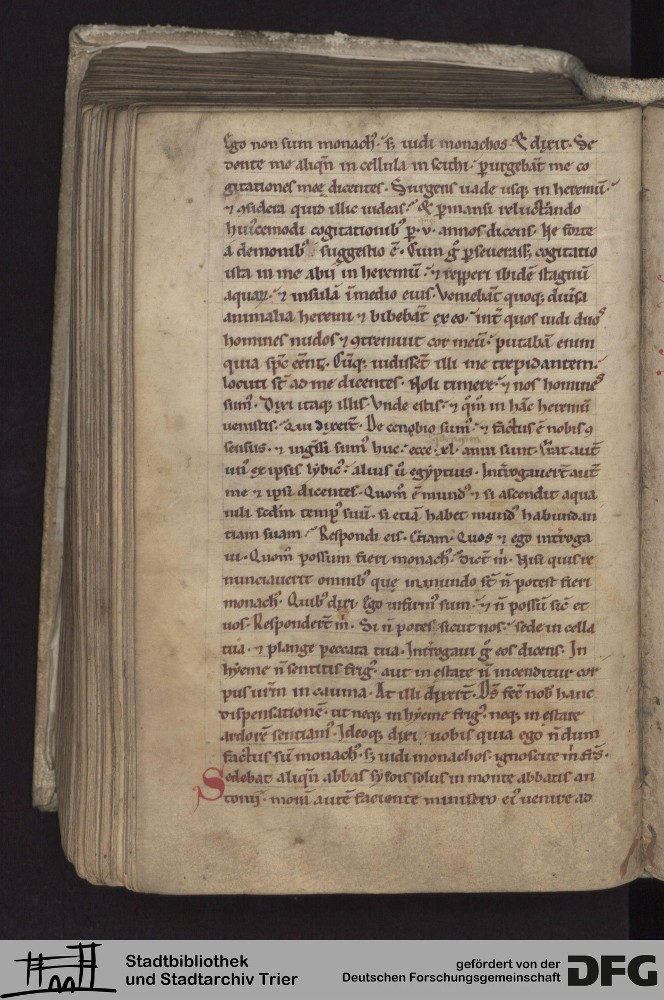 Ego non sum monachꝰ. sꝫ uidi monachos. Et dixit. Se
dente me aliqn̄ in cellula in scithi. ꝑurgebāt me co
gitationes meę dicentes. Surgens uade usqꝫ in heremū.
⁊ ꝯsidera quid illic uideas. Et ꝑmansi reluctando
huiꝰcemodi cogitationibꝰ ꝑ .v. annos dicens. Ne forte
a demonibꝰ suggestio ē. Cum gͦ ꝑseuerass; cogitatio
ista in me abii in heremū. ⁊ repperi ibidē stagnū
aquaꝝ. ⁊ insulā ī medio eius. Veniebāt quoqꝫ diūsa
animalia heremi ⁊ bibebāt ex eo. int̄ quos uidi duos
homines nudos ⁊ ꝯtremuit cor meū. putabā enim
quia sp̄c eēnt. Cūqꝫ uidissēt illi me trepidantem.
locuti st̄ ad me dicentes. Noli timere. ⁊ nos homines
sumꝰ. Dixi itaqꝫ illis. Vnde estis. ⁊ qm̄ in hāc heremū
uenistis. Qui dixer̄t. De cenobio sumꝰ. ⁊ factus ē nobis ꝯ
sensus. ⁊ inḡssi sumꝰ huc. ecce .xl. anni sunt. Erat aut̄
unꝰ ex ipsis lybicꝰ. alius ū egyptius. Int̄rogauer̄t aut̄
me ⁊ ipsi dicentes. Quom̄ ē mundꝰ ⁊ si ascendit aqua
nili scdm̄ tempꝰ suū. si etiā habet mundꝰ habundan
tiam suam. Respondi eis. Etiam. Quos ⁊ ego int̄roga
ui. Quom̄ possum fieri monachꝰ. Dicūt m̄. Nisi quis re
nunciauerit omnibꝰ que in mundo st̄ n̄ potest fieri
monachꝰ. Quibꝰ dixi. Ego infirmꝰ sum. ⁊ n̄ possū sic̄ et
uos. Responder̄t m̄. Si n̄ potes sicut nos. sede in cella
tua. ⁊ plange peccata tua. Int̄rogaui gͦ eos dicens. In
hyeme n̄ sentitis frigꝰ. aut in estate n̄ incenditur cor
pus ur̄m in cauma. At illi dixer̄t. Ds̄ fec̄ nob̄ hanc
dispensationē. ut neqꝫ in hyeme frigꝰ. neqꝫ in estate
ardorē sentiamꝰ. Ideoqꝫ dixi uobis quia ego n̄ dum
factus sū monachꝰ. sꝫ uidi monachos. ignoscite m̄ fr̄s.
Sedebat aliqn̄ abbas sysois solus in monte abbatis an
tonii. moram autē faciente ministro eiꝰ uenire ad
Stadtbibliothek
und Stadtarchiv Trier
gefördert von der
Deutschen Forschungsgemeinschaft
DFG